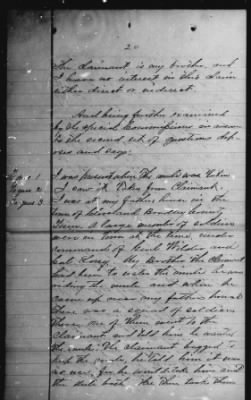 20
The Claimant is my brother, and
I have no interest in this Claim
either direct or indirect.
And being further examined
by the special Commissioner in answer
to the second set of questions depo-
ses and says:
I was present when the mule was taken.
I saw it taken from Claimant.
I was at my father's house in the
town of Cleveland Bradley County
Tenn. A large number of soldiers
were in town at the time, under
command of Genl Wilder and
Col. Long. My Brother the Claimant
had been to water the mule
riding the mule and when he
came up near my father's house
there was a squad of soldiers
there, one of them went to the
Claimant and told him he wanted
the mule. The claimant begged to
keep the mule, he told him it was
no use, for he
the mule both. He then took him